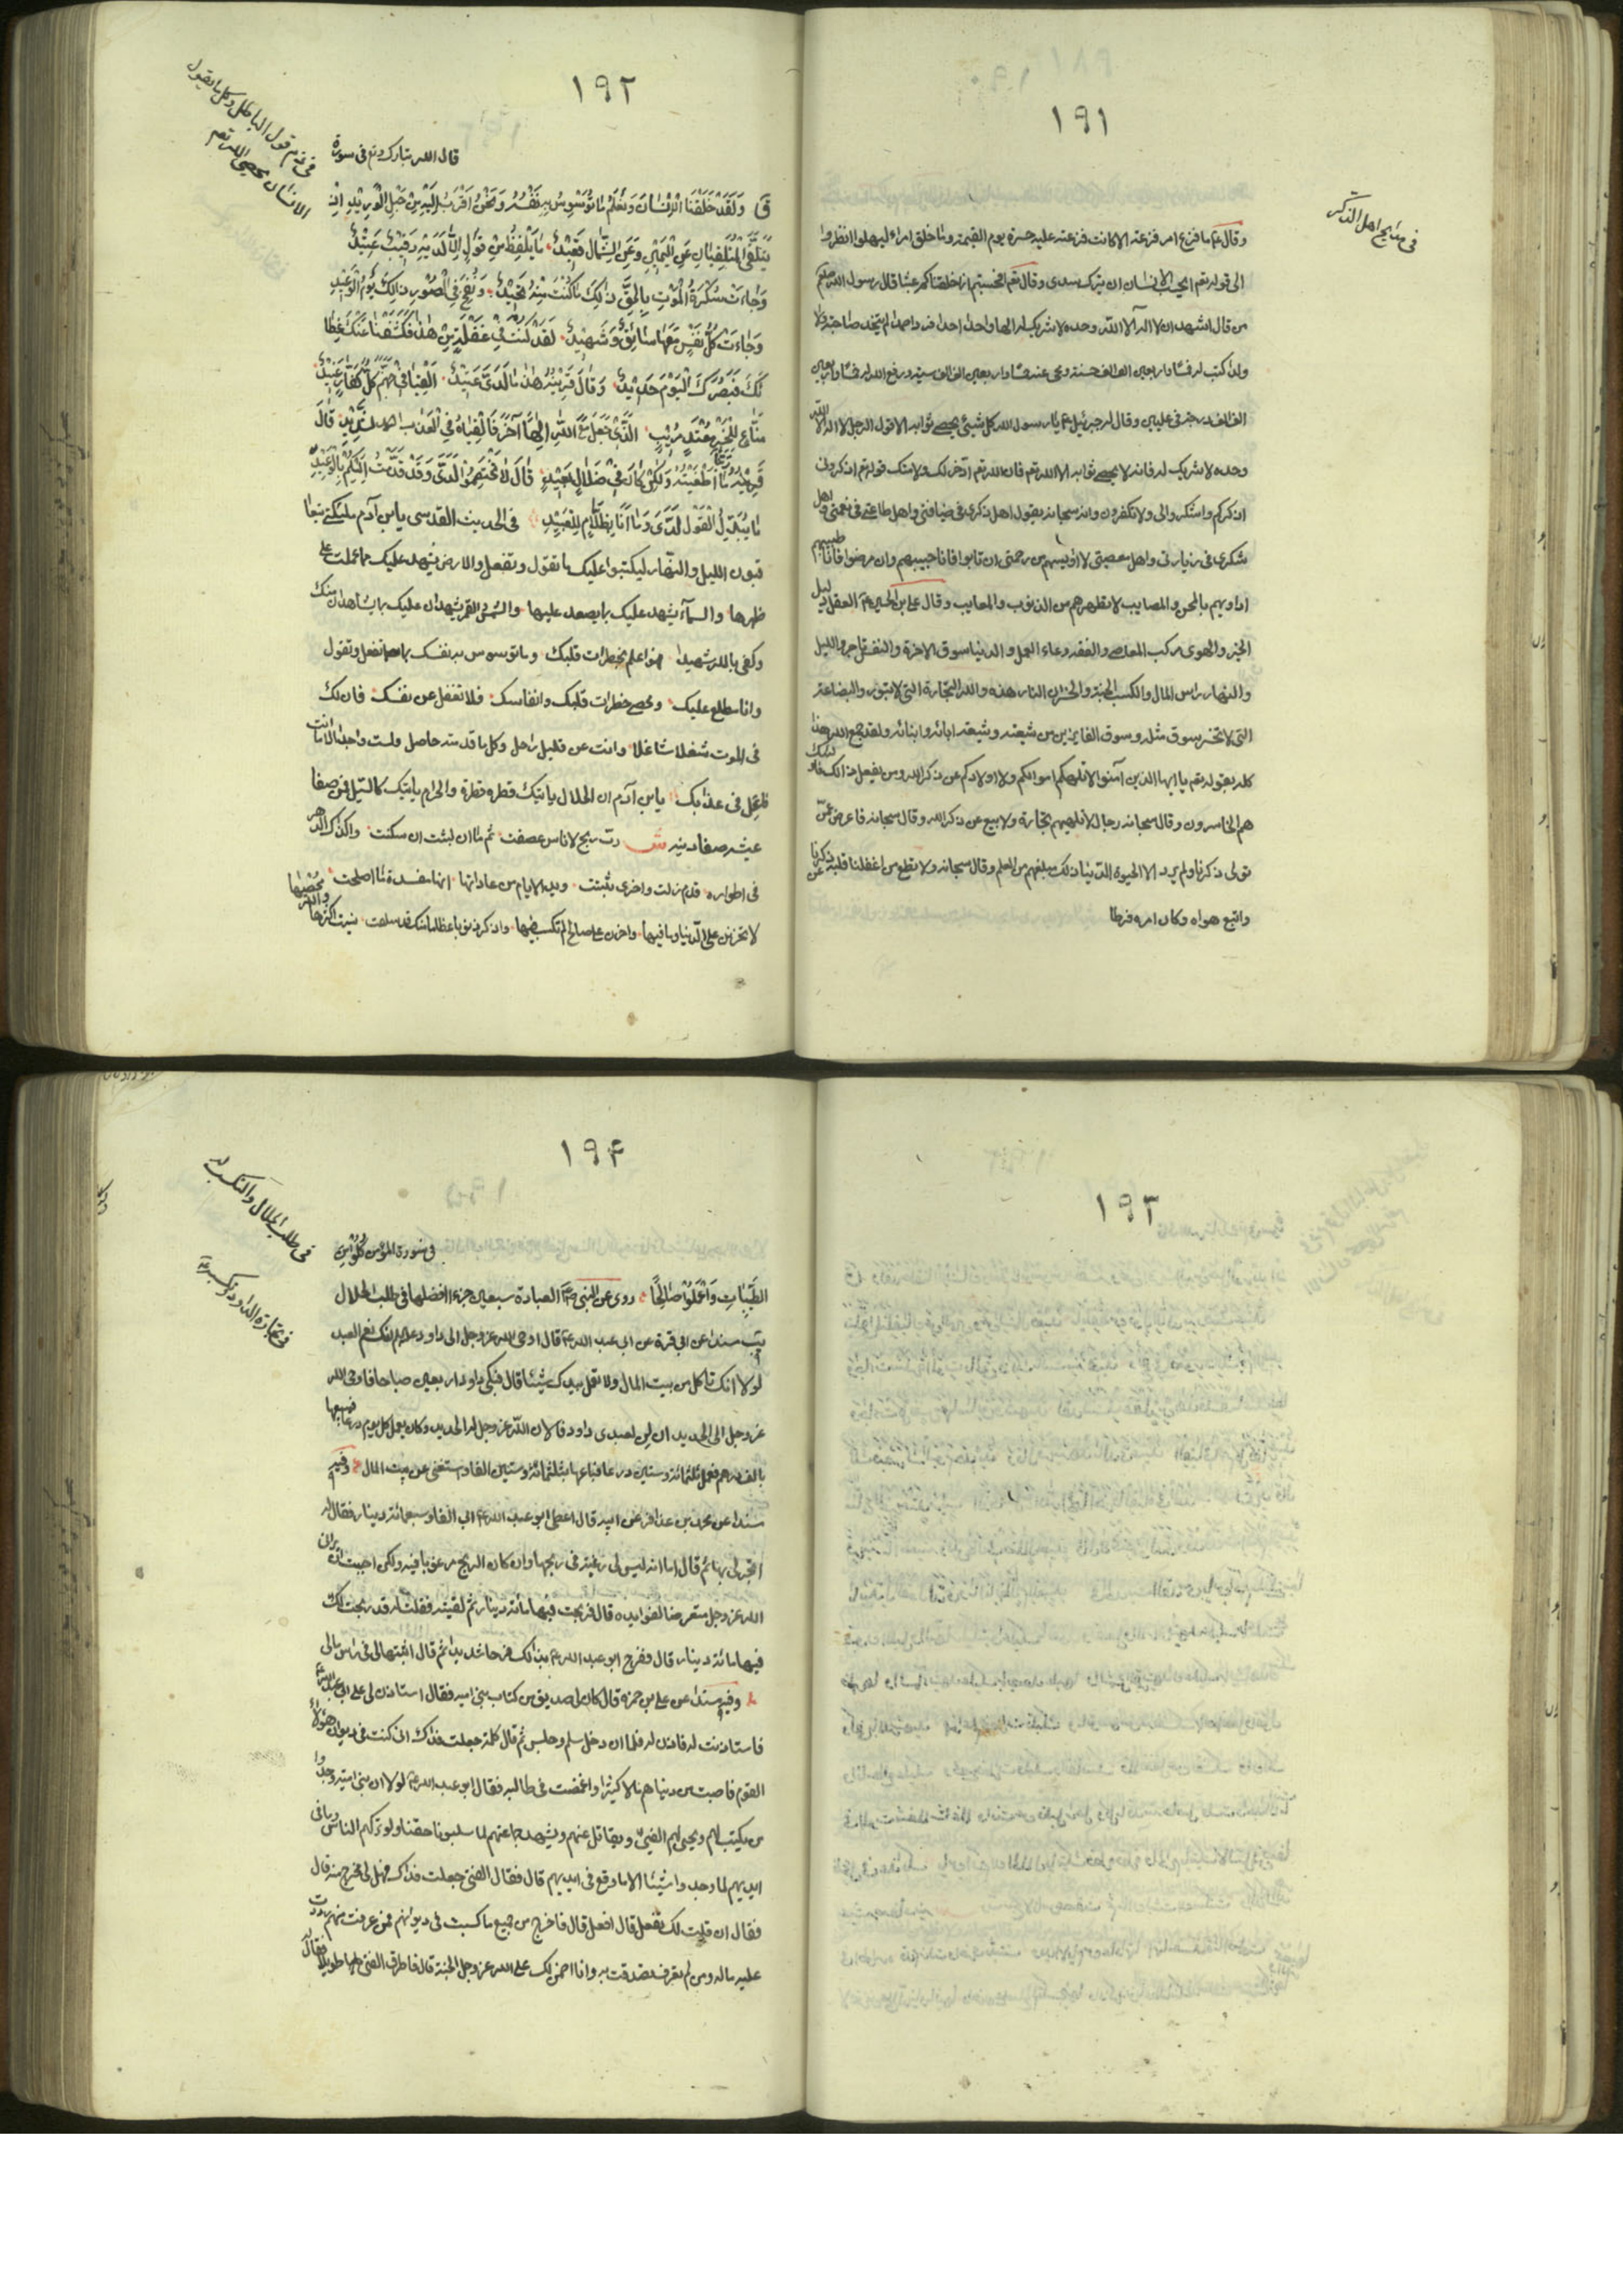 ١٩١
فى مدايح اهل الذكر
وقال ع ما فزع امرء فزعته الا كانت فزعته عليه حسرة يوم القيمة وما خلق امرء ليهلوا انظروا
الى قوله تعم ايحسب الانسان ان يترك سدى وقال تعم افحسبتم انما خلقناكم عبثا قال رسول الله صلعم
من قال اشهد ان لا اله الا الله وحده لا شريك له الها واحدا احدا فردا صمدا لم يتخذ صاحبة ولا
ولدا كتب له خمسا واربعين الف الف حسنة ومحى عنه خمسا واربعين الف الف سيئة ورفع الله له خمسا واربعين
الف الف درجة فى عليين وقال له جبرئيل ع يا رسول الله كل شيئ يحصى ثوابه الا قول الرجل لا اله الا الله
وحده لا شريك له فانه لا يحصى ثوابه الا الله تعم فان الله تعم ادخر لك ولامتك قوله تعم اذكرونى
اذكركم واشكروا لى ولا تكفرون وانه سبحانه يقول اهل ذكرى فى ضيافتى واهل طاعتى فى نعمتى واهل
شكرى فى زيارتى واهل معصيتى لا اويسهم من رحمتى ان تابوا فانا حبيبهم وان مرضوا فانا طبيبهم
اداويهم بالمحن والمصايب لاطهرهم من الذنوب والمعايب وقال على بن الحسين ع العقل دليل
الخير والهوى مركب المعاصى والفقه وعاء العمل والدنيا سوق الاخرة والنفس تاجر والليل
والنهار راس المال والكسب الجنة والخسران النار هذه والله التجارة التى لا تبور والبضاعة
التى لا تخسر سوق مثله وسوق الفايزين من شيعته وشيعة ابائه وابنائه ولقد جمع الله هذا
كله بقوله تعم يا ايها الذين آمنوا لا تلهكم اموالكم ولا اولادكم عن ذكر الله ومن يفعل ذالك فاولئك
هم الخاسرون وقال سبحانه رجال لا تلهيهم تجارة ولا بيع عن ذكر الله وقال سبحانه فاعرض عن
تولى ذكرنا ولم يرد الا الحيوة الدنيا ذلك مبلغهم من العلم وقال سبحانه ولا تطع من اغفلنا قلبه عن ذكرنا
واتبع هواه وكان امره فرطا
١٩٢
فى ذم قول الباطل وكل ما يقول
الانسان يحصى الله تعم
قال الله تبارك وتعم فى سورة
ق وَلَقَدْ خَلَقْنَا الْاِنْسَانَ وَنَعْلَمُ مَا تُوَسْوِسُ بِهِ نَفْسُهُ وَنَحْنُ اَقْرَبُ اِلَيْهِ مِنْ حَبْلِ الْوَرِيْدِ اِذْ
يَتَلَقَّى الْمُتَلَقِّيَانِ عَنِ الْيَمِيْنِ وَعَنِ الشِّمَالِ قَعِيْدٌ مَا يَلْفِظُ مِنْ قَوْلٍ اِلَّا لَدَيْهِ رَقِيْبٌ عَتِيْدٌ
وَجَاءَتْ سَكْرَةُ الْمَوْتِ بِالْحَقِّ ذَالِكَ مَا كُنْتَ مِنْهُ تَحِيْدُ وَنُفِخَ فِى الصُّوْرِ ذَالِكَ يَوْمُ الْوَعِيْدِ
وَجَاءَتْ كُلُّ نَفْسٍ مَعَهَا سَائِقٌ وَشَهِيْدٌ لَقَدْ كُنْتَ فِىْ غَفْلَةٍ مِنْ هٰذَا فَكَشَفْنَا عَنْكَ غِطَا
ئَكَ فَبَصَرُكَ الْيَوْمَ حَدِيْدٌ وَقَالَ قَرِيْنُهُ هٰذَا مَا لَدَىَّ عَتِيْدٌ اَلْقِيَا فِىْ جَهَنَّمَ كُلَّ كَفَّارٍ عَنِيْدٍ
مَنَّاعٍ لِلْخَيْرِ مُعْتَدٍ مُرِيْبٍ الَّذِىْ جَعَلَ مَعَ اللّٰهِ اِلٰهًا آخَرَ فَاَلْقِيَاهُ فِى الْعَذَابِ الشَّدِيْدِ قَالَ
قَرِيْنُهُ رَبَّنَا مَا اَطْغَيْتُهُ وَلٰكِنْ كَانَ فِىْ ضَلَالٍ بَعِيْدٍ قَالَ لَا تَخْتَصِمُوْا لَدَىَّ وَقَدْ قَدَّمْتُ اِلَيْكُمْ بِالْوَعِيْدِ
مَا يُبَدَّلُ الْقَوْلُ لَدَىَّ وَمَا اَنَا بِظَلَّامٍ لِلْعَبِيْدِ فى الحديث القدسى يابن آدم ملئكتى يتعا
قبون الليل والنهار ليكتبوا عليك ما تقول وتفعل والارض يشهد عليك بما عملت على
ظهرها والسمآء يشهد عليك بما يصعد عليها والشمس القمر يشهدان عليك بما يشاهدان منك
وكفى بالله شهيدا هو اعلم بخطرات قلبك وما توسوس به نفسك بما تفعل وتقول
وانا مطلع عليك ومحص خطرات قلبك وانفاسك فلا تغفل عن نفسك فان لك
فى الموت شغلا شاغلا وانت عن قليل راحل وكل ما قدمته حاصل ولست واجدا الا ما انت
فاعجل فى عذابك يابن آدم ان الحلال ياتيك قطرة قطرة والحرام ياتيك كالسيل فمن صفا
عيشه صفا دينه ش ربّ ريح لاناس عصفت ثم ما ان لبثت ان سكنت وكذاك الدهر
فى اطواره قدم زلت واخرى ثبتت ويد الايام من عاداتها انها مفسدة ما اصلحت
لا تحزن على الدنيا وما فيها واحزن على صالح لم تكتسب فيها واذكر ذنوبا عظاما منك قد سلفت نسيت اكثرها والله محصيها
١٩٣
١٩٤
فى طلب الحلال والكسب له
فى تجارة الداود وكسبه ع
فى سورة المؤمن كُلُوْا مِنَ
الطَّيِّبَاتِ وَاعْمَلُوْا صَالِحًا روى عن النبى ص العبادة سبعين جزء افضلها فى طلب الحلال
يب مسندا عن ابى قرة عن ابى عبد الله ع قال اوحى الله عز وجل الى داود ع انك نعم العبد
لولا انك تاكل من بيت المال ولا تعمل بيدك شيئا قال فبكى داود اربعين صباحا فاوحى الله
عز وجل الى الحديد ان لن لعبدى داود فالان الله عز وجل له الحديد وكان يعمل كل يوم درعا فيبيعها
بالف درهم فعمل ثلثمائة وستين درعا فباعها بثلثمائة وستين الفا واستغنى عن بيت المال وفيه
مسندا عن محمد بن عذافر عن ابيه قال اعطى ابو عبد الله ع ابى الفا وسبعمائة دينار فقال له
اتجر لى بها ثم قال اما انه ليس لى رغبة فى ربحها وان كان الربح مرغوبا فيه ولكن احببت ان يرانى
الله عز وجل متعرضا لفوايده قال فربحت فيها مائة دينار ثم لقيته فقلت له قد ربحت لك
فيها مائة دينار قال ففرح ابو عبد الله ع بذالك فرحا شديدا ثم قال اثبتها لى فى راس مالى
وفيه مسندا عن على بن حمزه قال كان لى صديق من كتاب بنى اميه فقال استاذن لى على ابى عبد الله ع
فاستاذنت له فاذن له فلما ان دخل سلم وجلس ثم قال كلمة جعلت فداك انى كنت فى ديوان هؤلاء
القوم فاصبت من دنياهم مالا كثيرا واغمضت فى مطالبه فقال ابو عبد الله ع لولا ان بنى اميه وجدوا
من يكتب لهم ويجبى لهم الفيئ ويقاتل عنهم ويشهد جماعتهم لما سلبونا حقنا ولو تركهم الناس وما فى
ايديهم لما وجدوا شيئا الا ما وقع فى ايديهم قال فقال الفتى جعلت فداك فهل لى مخرج منه قال
فقال ان قلت لك تفعل قال افعل قال فاخرج من جميع ما كسبت فى ديوانهم فمن عرفت منهم رددت
عليه ماله ومن لم تعرف تصدقت به وانا اضمن لك على الله عز وجل الجنة قال فاطرق الفتى طويلا فقال